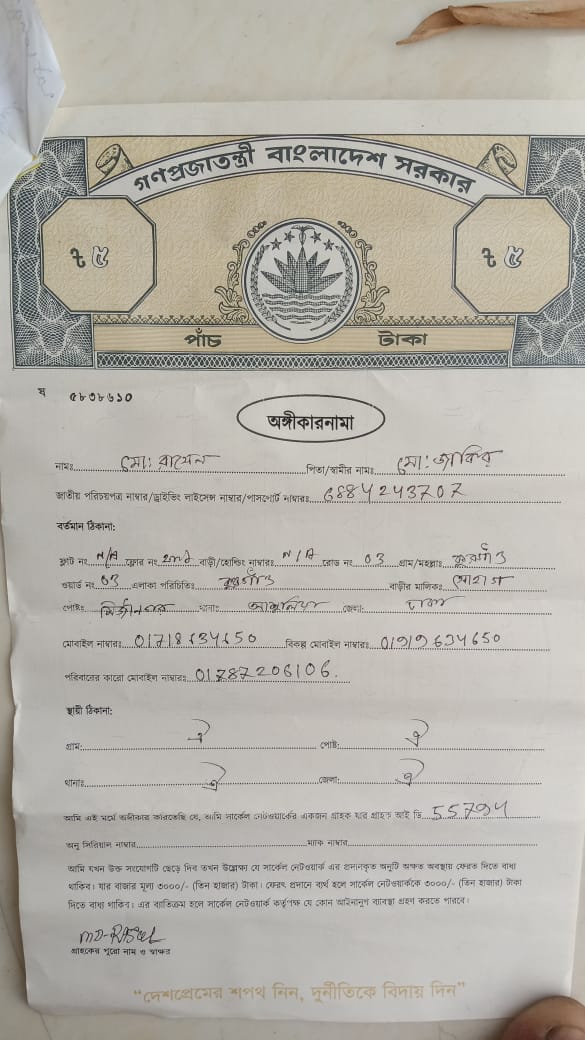 গণপ্রজাতন্ত্রী বাংলাদেশ সরকার
৳ ৫ ৳ ৫
পাঁচ টাকা
ষ ৫৮৩৮৬১০
অঙ্গীকারনামা
নামঃ মো: রাসেল পিতা/স্বামীর নামঃ মো: জাকির
জাতীয় পরিচয়পত্র নাম্বার/ড্রাইভিং লাইসেন্স নাম্বার/পাসপোর্ট নাম্বারঃ 6884243707
বর্তমান ঠিকানা:
ফ্লাট নং N/A ফ্লোর নং 2nd বাড়ী/হোল্ডিং নাম্বারঃ N/A রোড নং 03 গ্রাম/মহল্লাঃ কুরগাঁও
ওয়ার্ড নং 03 এলাকা পরিচিতিঃ কুরগাঁও বাড়ীর মালিকঃ
পোষ্টঃ মির্জানগর থানাঃ আশুলিয়া জেলা: ঢাকা
মোবাইল নাম্বারঃ 01718634650 বিকল্প মোবাইল নাম্বারঃ 01919634650
পরিবারের কারো মোবাইল নাম্বারঃ 01787206106.
স্থায়ী ঠিকানা:
গ্রাম: ঐ পোষ্ট: ঐ
থানাঃ ঐ জেলা: ঐ
আমি এই মর্মে অঙ্গীকার করিতেছি যে, আমি সার্কেল নেটওয়ার্কের একজন গ্রাহক যার গ্রাহক আই ডি 55794
অনু সিরিয়াল নাম্বার ম্যাক নাম্বার
আমি যখন উক্ত সংযোগটি ছেড়ে দিব তখন উল্লেক্ষ্য যে সার্কেল নেটওয়ার্ক এর প্রদানকৃত অনুটি অক্ষত অবস্থায় ফেরত দিতে বাধ্য
থাকিব। যার বাজার মূল্য ৩০০০/- (তিন হাজার) টাকা। ফেরৎ প্রদানে ব্যর্থ হলে সার্কেল নেটওয়ার্ককে ৩০০০/- (তিন হাজার) টাকা
দিতে বাধ্য থাকিব। এর ব্যতিক্রম হলে সার্কেল নেটওয়ার্ক কর্তৃপক্ষ যে কোন আইনানুগ ব্যবস্থা গ্রহণ করতে পারবে।
MD-RASEL
গ্রাহকের পুরো নাম ও স্বাক্ষর
“দেশপ্রেমের শপথ নিন, দুর্নীতিকে বিদায় দিন”